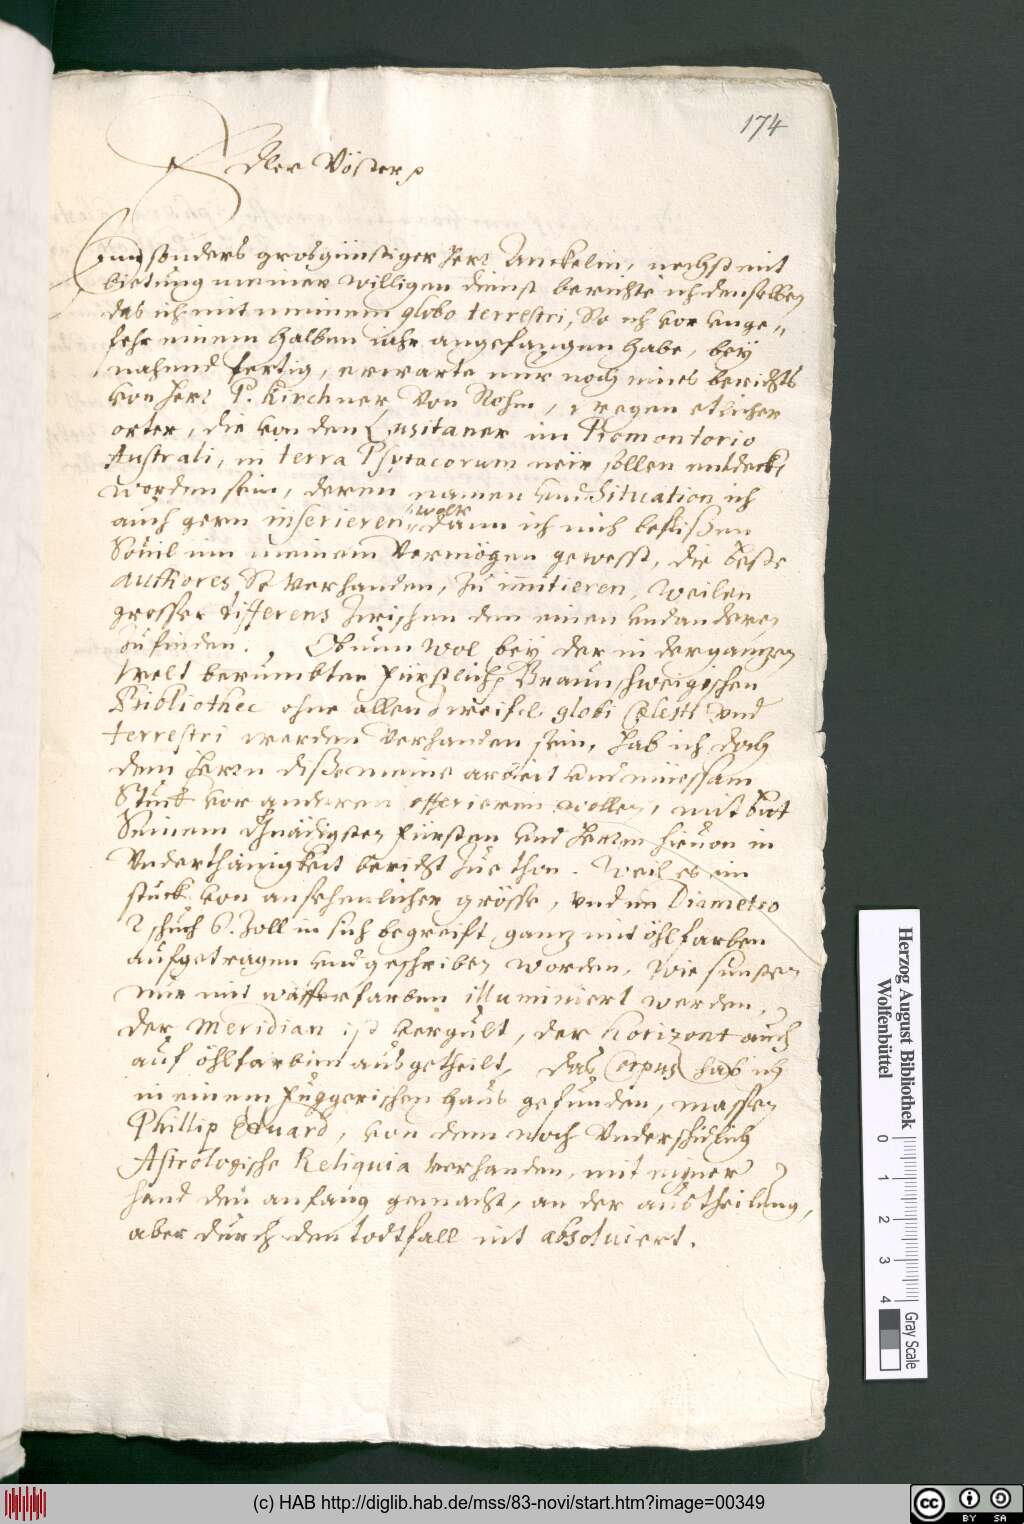 174
Edler Vöster
Innsonders grosgünstiger Herr Anckelin, nechst mit
bietung meiner willigen dienst berichte ich denselben
das ich mit meinem globo terrestri, So ich vor unge„
fehr einem halben iahr angefangen habe, bey
nahend fertig, erwarte nur noch eines berichts
von Herr P. Kirchner Von Rohm, wegen etlicher
orter, die von den Lusitaner im Promontorio
Australi, in terra Psytacorum neü sollen entdeckt
worden sein, deren namen und Situation ich
auch gern inserieren wolt dann ich mich beflißen
Sovil inn meinem Vermögen gewesst, die beste
authores, So verhanden, zu immitieren, weilen
grosser differens zwischen dem einen und anderen
zu finden. Ob nun wol bey der in der ganzen
Welt berümbten fürstlich Braunschweigischen
Bibliothec ohne allen zweifel globi Cœlesti Und
terrestri werden verhanden sein, hab ich doch
dem Herrn diße meine arbeit und müessam
Stuckh vor anderen offerieren wollen, mit bit
Seinem Gnädigsten fürsten und Herrn hievon in
Underthänigkeit bericht zue thon. Weil es ein
stuck von ansehenlicher grösse, und im Diametro
2 schuch 6. Zoll in sich begreift, ganz mit öhlfarben
aufgetragen und geschriben worden, wie sunsten
nur mit wasserfarben illuminiert werden,
der Meridian ist vergult, der Horizont auch
auf öhlfarbin ausgetheilt, das Corpus hab ich
in einem Fuggerischen Haus gefunden, massen
Phillip Eduard, von dem noch Underschidlich
Astrologische Reliquia verhanden, mit eigner
hand den anfang gemacht, an der austheilung,
aber durch den todtfall nit absolviert.
Herzog August Bibliothek
Wolfenbüttel
0 1 2 3 4
Gray Scale
(c) HAB http://diglib.hab.de/mss/83-novi/start.htm?image=00349
cc BY SA